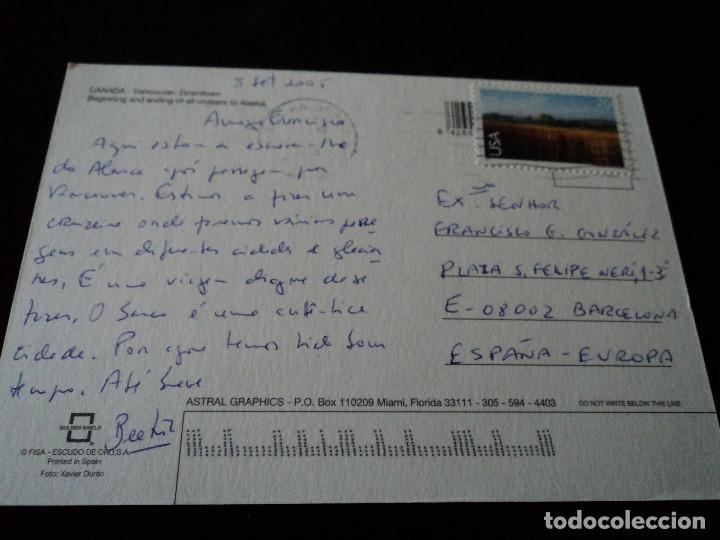 5 Set 2005
CANADA - Vancouver. Downtown
Beginning and ending of all cruisers to Alaska.
Amigo Francisco
Aqui estou a escrever-lhe
do Alasca após passagem por
Vancouver. Estamos a fazer um
cruzeiro onde faremos várias
gens em diferentes cidades e glacia
res. É uma viagem digna de se
fazer. O barco é uma autêntica
cidade. Por agora temos tido bom
tempo. Até breve
USA
EX.mo SENHOR
FRANCISCO G. GONZÁLEZ
PLAZA S. FELIPE NERI, 1-3º
E-08002 BARCELONA
ESPAÑA - EUROPA
ASTRAL GRAPHICS - P.O. Box 110209 Miami, Florida 33111 - 305 - 594 - 4403
DO NOT WRITE BELOW THIS LINE
GOLDEN SHIELD
© FISA - ESCUDO DE ORO, S.A.
Printed in Spain
Foto: Xavier Durán
todocoleccion
todocoleccion.net